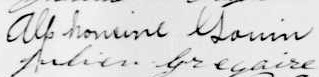 Alphonsine Gouin
Julien Gregaire